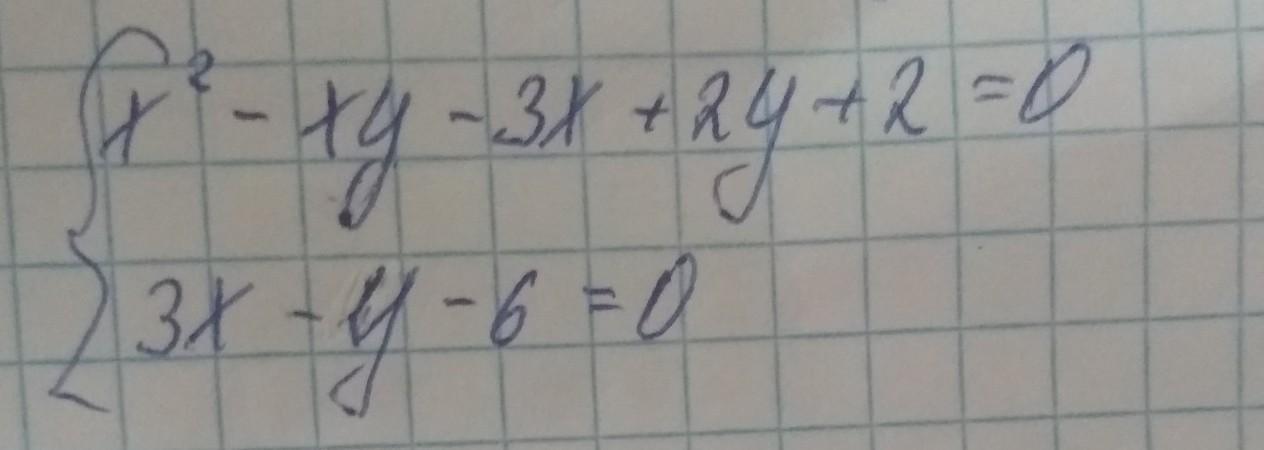 x² - xy - 3x + 2y + 2 = 0
3x - y - 6 = 0